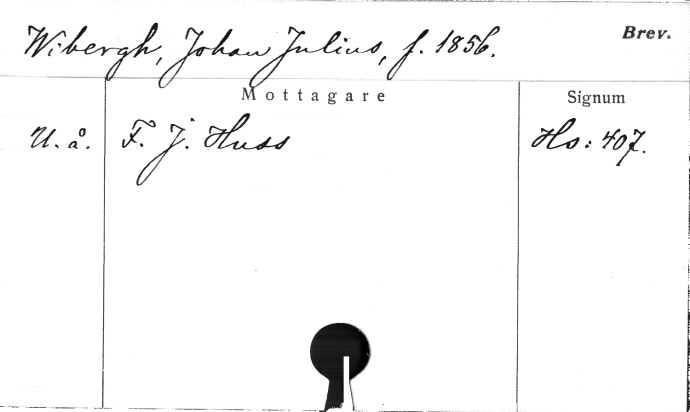 Wibergh, Johan Julius, f. 1856. Brev.
Mottagare Signum
U. å. F. J. Huss Hs: 407.